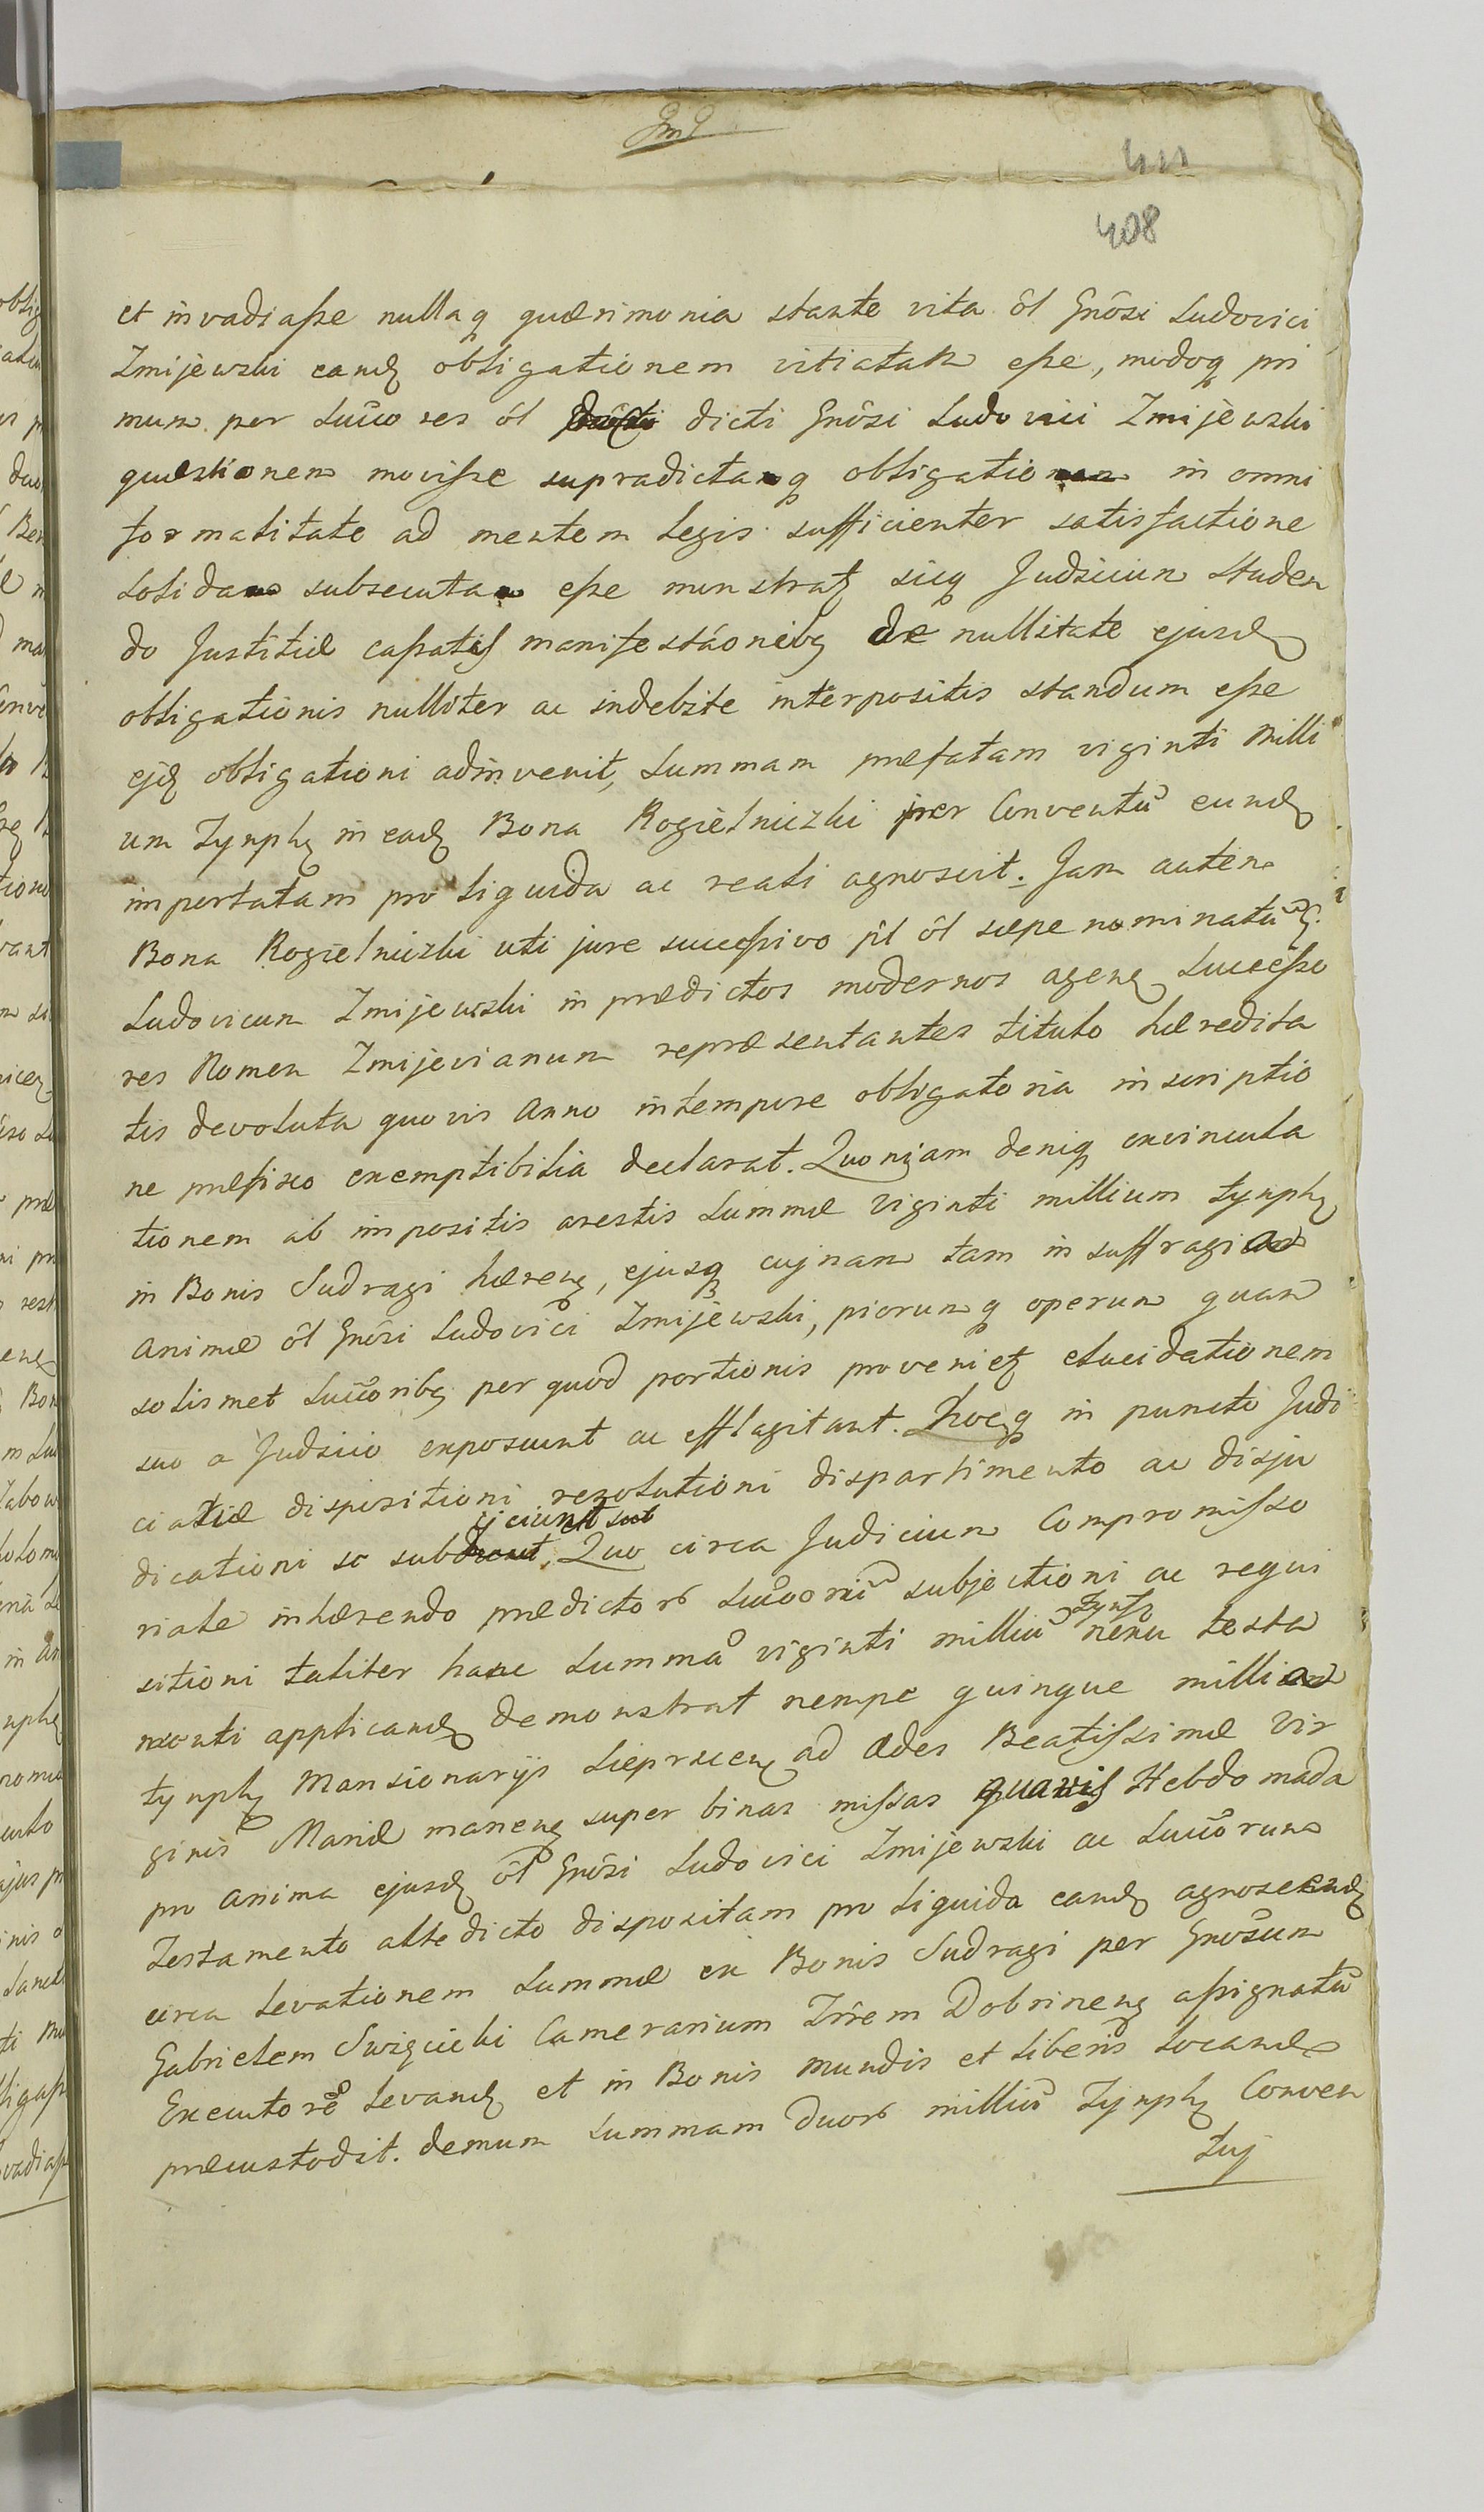 411
408
et invadiasse nullaq querimonia stante vita ol Gnosi Ludovici
Zmijewski eandę obligationem vitiatam esse, modoq pri
mum per Succores ol dicti Gnosi Ludovici Zmijewski
quæstionem movisse supradictamq obligationem in omni
formalitate ad mentem legis sufficienter satisfactione
solidam subsecutam esse sicq Judicium studen
do Justitiæ cassatis manifestaonibq de nullitate ejusdę
obligationis nulliter ac indebite interpositis standum esse
ejdę obligationi adinvenit, Summam præfatam viginti milli
um Tynphę in eadę Bona Rogielniczki per Conventū eundę
importatam pro liquida ac reali agnoscit. Jam autem
Bona Rogielniczki uti jure successivo p ol sæpe nominatū G.
Ludovicum Zmijewski in prædictos modernos agenę Successo
res Nomen Zmijevianum repræsentantes titulo hæredita
tis devoluta quovis Anno intempore obligatoria inscriptio
ne præfixo exemptibilia declarat. Quoniam deniq exvincula
tionem ab impositis arestis Summæ viginti millium tynphę
in Bonis Sudragi hærenę, ejusq cujnam tam in suffragium
Animæ ol Gnosi Ludovici Zmijewski, piorumq operum quam
solismet Succoribq per quod portionis provenietę elucidationem
suo a Judicio exposcunt ac efflagitant. Hocq in puncto Judi
ciatiæ dispositioni resolutioni dispartimento ac disju
dicationi se subjiciunt Quo circa Judicium Compromisso
riale inhærendo prædictor Succorū subjectioni ac requi
sitioni taliter hanc Summā viginti milliū tynfo nexu testa
menti applicandę demonstrat nempe quinque millium
tynphę Mansionarijs Sieprscenę ad Ædes Beatissimæ Vir
ginis Mariæ manenę super binas missas quavis Hebdomada
pro anima ejusdę ol Gnosi Ludovici Zmijewski ac Succorum
Testamento alte dicto dispositam pro liquida eandę agnoscendę
circa levationem Summæ ex Bonis Sudragi per Gnosum
Gabrielem Swięcicki Camerarium Trrem Dobrinenę assignatū
Executorē levandę et in Bonis mundis et liberis locandę
præcustodit. demum Summam duor milliū Tynphę Conven
tuj